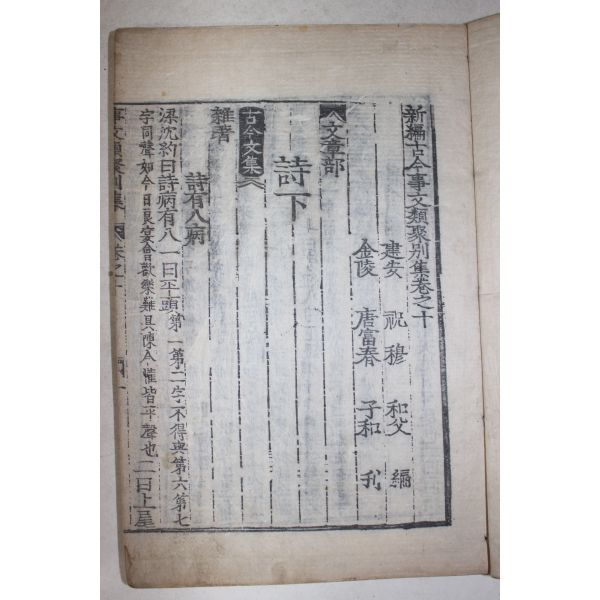 新編古今事文類聚別集卷之十
建安 祝穆 和父 編
金陵 唐富春 子和 刋
文章部
詩下
古今文集
雜著
詩有八病
梁沈約曰詩病有八一曰平頭第一第二字不得與第六第七
字同聲如今日良宴會歡樂難具陳今懽皆平聲也二曰上尾
事文類聚別集 卷之十 一